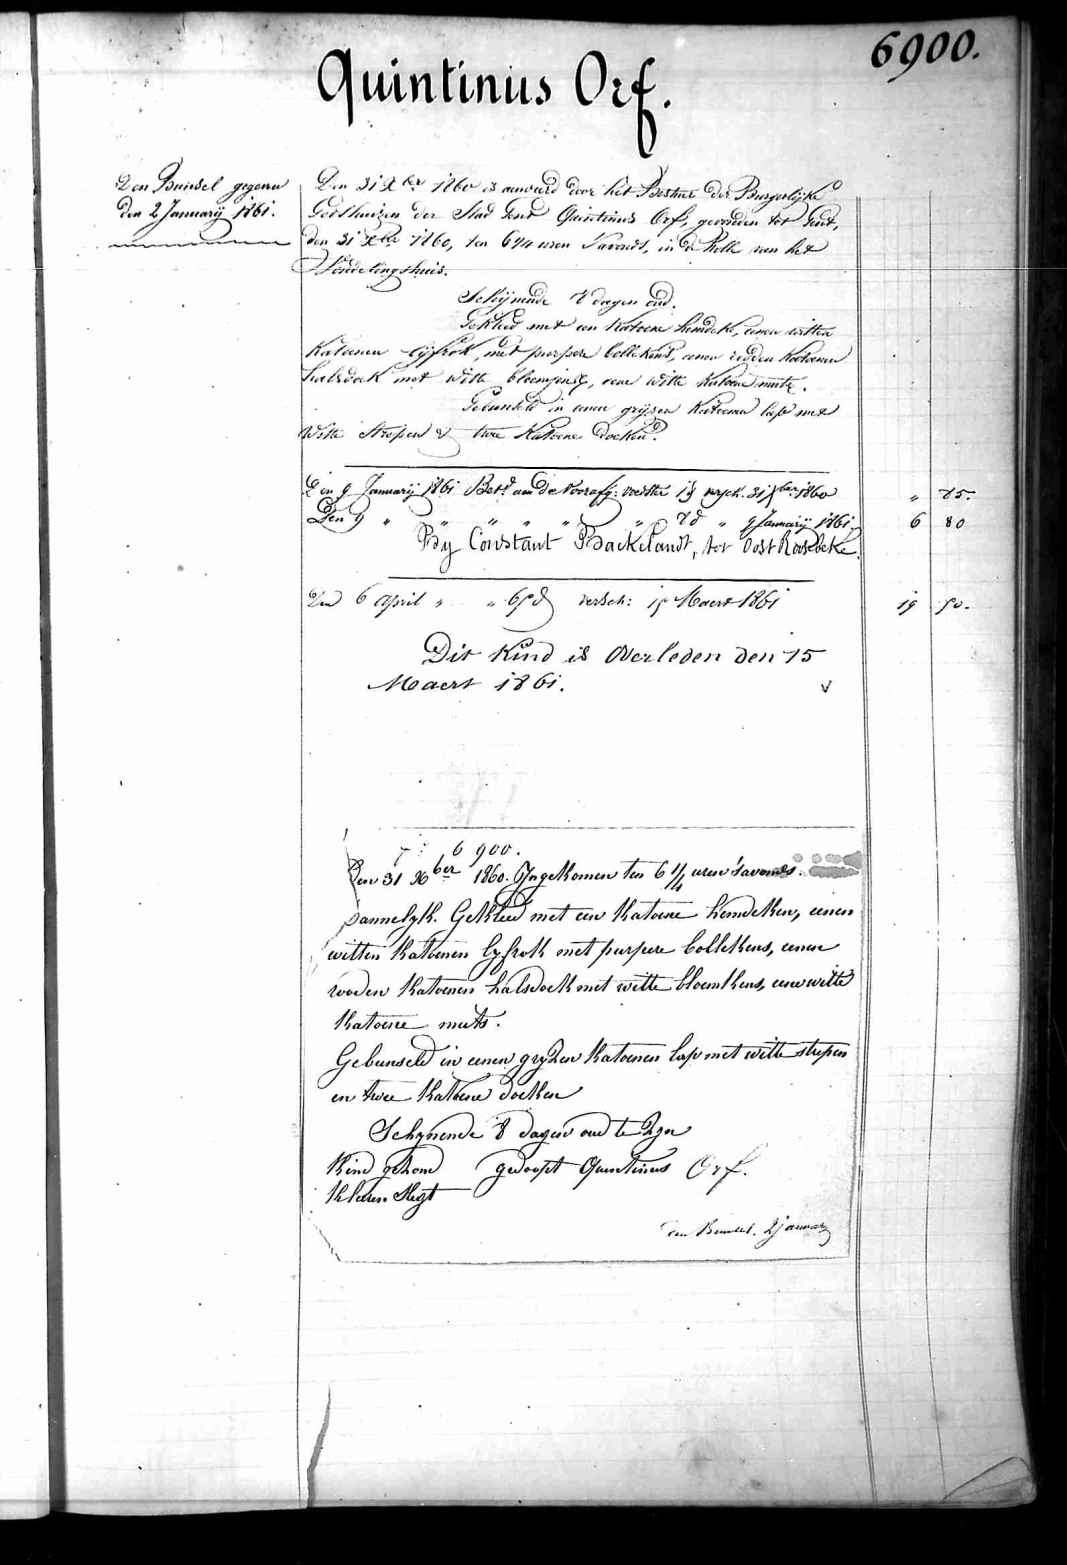 6900.
Quintinus Orf.
Den Bunsel gegeven
den 2 Januarij 1861.
Den 31 Xber 1860 is aanveerd door het Bestuur der Burgerlijke
Godshuizen der Stad Gend Quintinus Orf, gevonden tot Gent,
den 31 Xber 1860, ten 6 1/4 uren 's avonds, in de Rolle van het
Vondelingshuis.
Schijnende 8 dagen oud.
Gekleed met een katoene hemdeke, eenen witten
katoenen lijfrok, met purpere bollekens, eenen rooden katoenen
halsdoek met witte bloempjens, eene witte katoene muts.
Gebunseld in eenen grijzen katoenen lap met
witte strepen & twee katoene doeken.
Den 9 Januarij 1861 Bet. aan de voorafg: voedster 1 d versch. 31 Xber 1860 " 75.
Den 9 " " " " " " 8 d " 9 Januarij 1861. 6 80
By Constant Backelandt, tot Oost Roosbeke.
Den 6 April " " 65 d versch: 15 Maert 1861 19 50.
Dit Kind is Overleden den 15
Maert 1861. v
6900.
Den 31 Xber 1860. Ingekomen ten 6 1/4 uren 's avonds.
mannelyk. Gekleed met een katoene hemdeken, eenen
witten katoenen lyfrok met purpere bollekens, eenen
rooden katoenen halsdoek met witte bloemkens, eene witte
katoene muts.
Gebunseld in eenen gryzen katoenen lap met witte strepen
en twee katoene doeken
Schynende 8 dagen oud te zyn
Kind gezond gedoopt Quintinus Orf.
kleeren slegt
den Bunsel. 2 januari